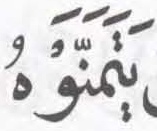 يَتَمَنَّوْهُ